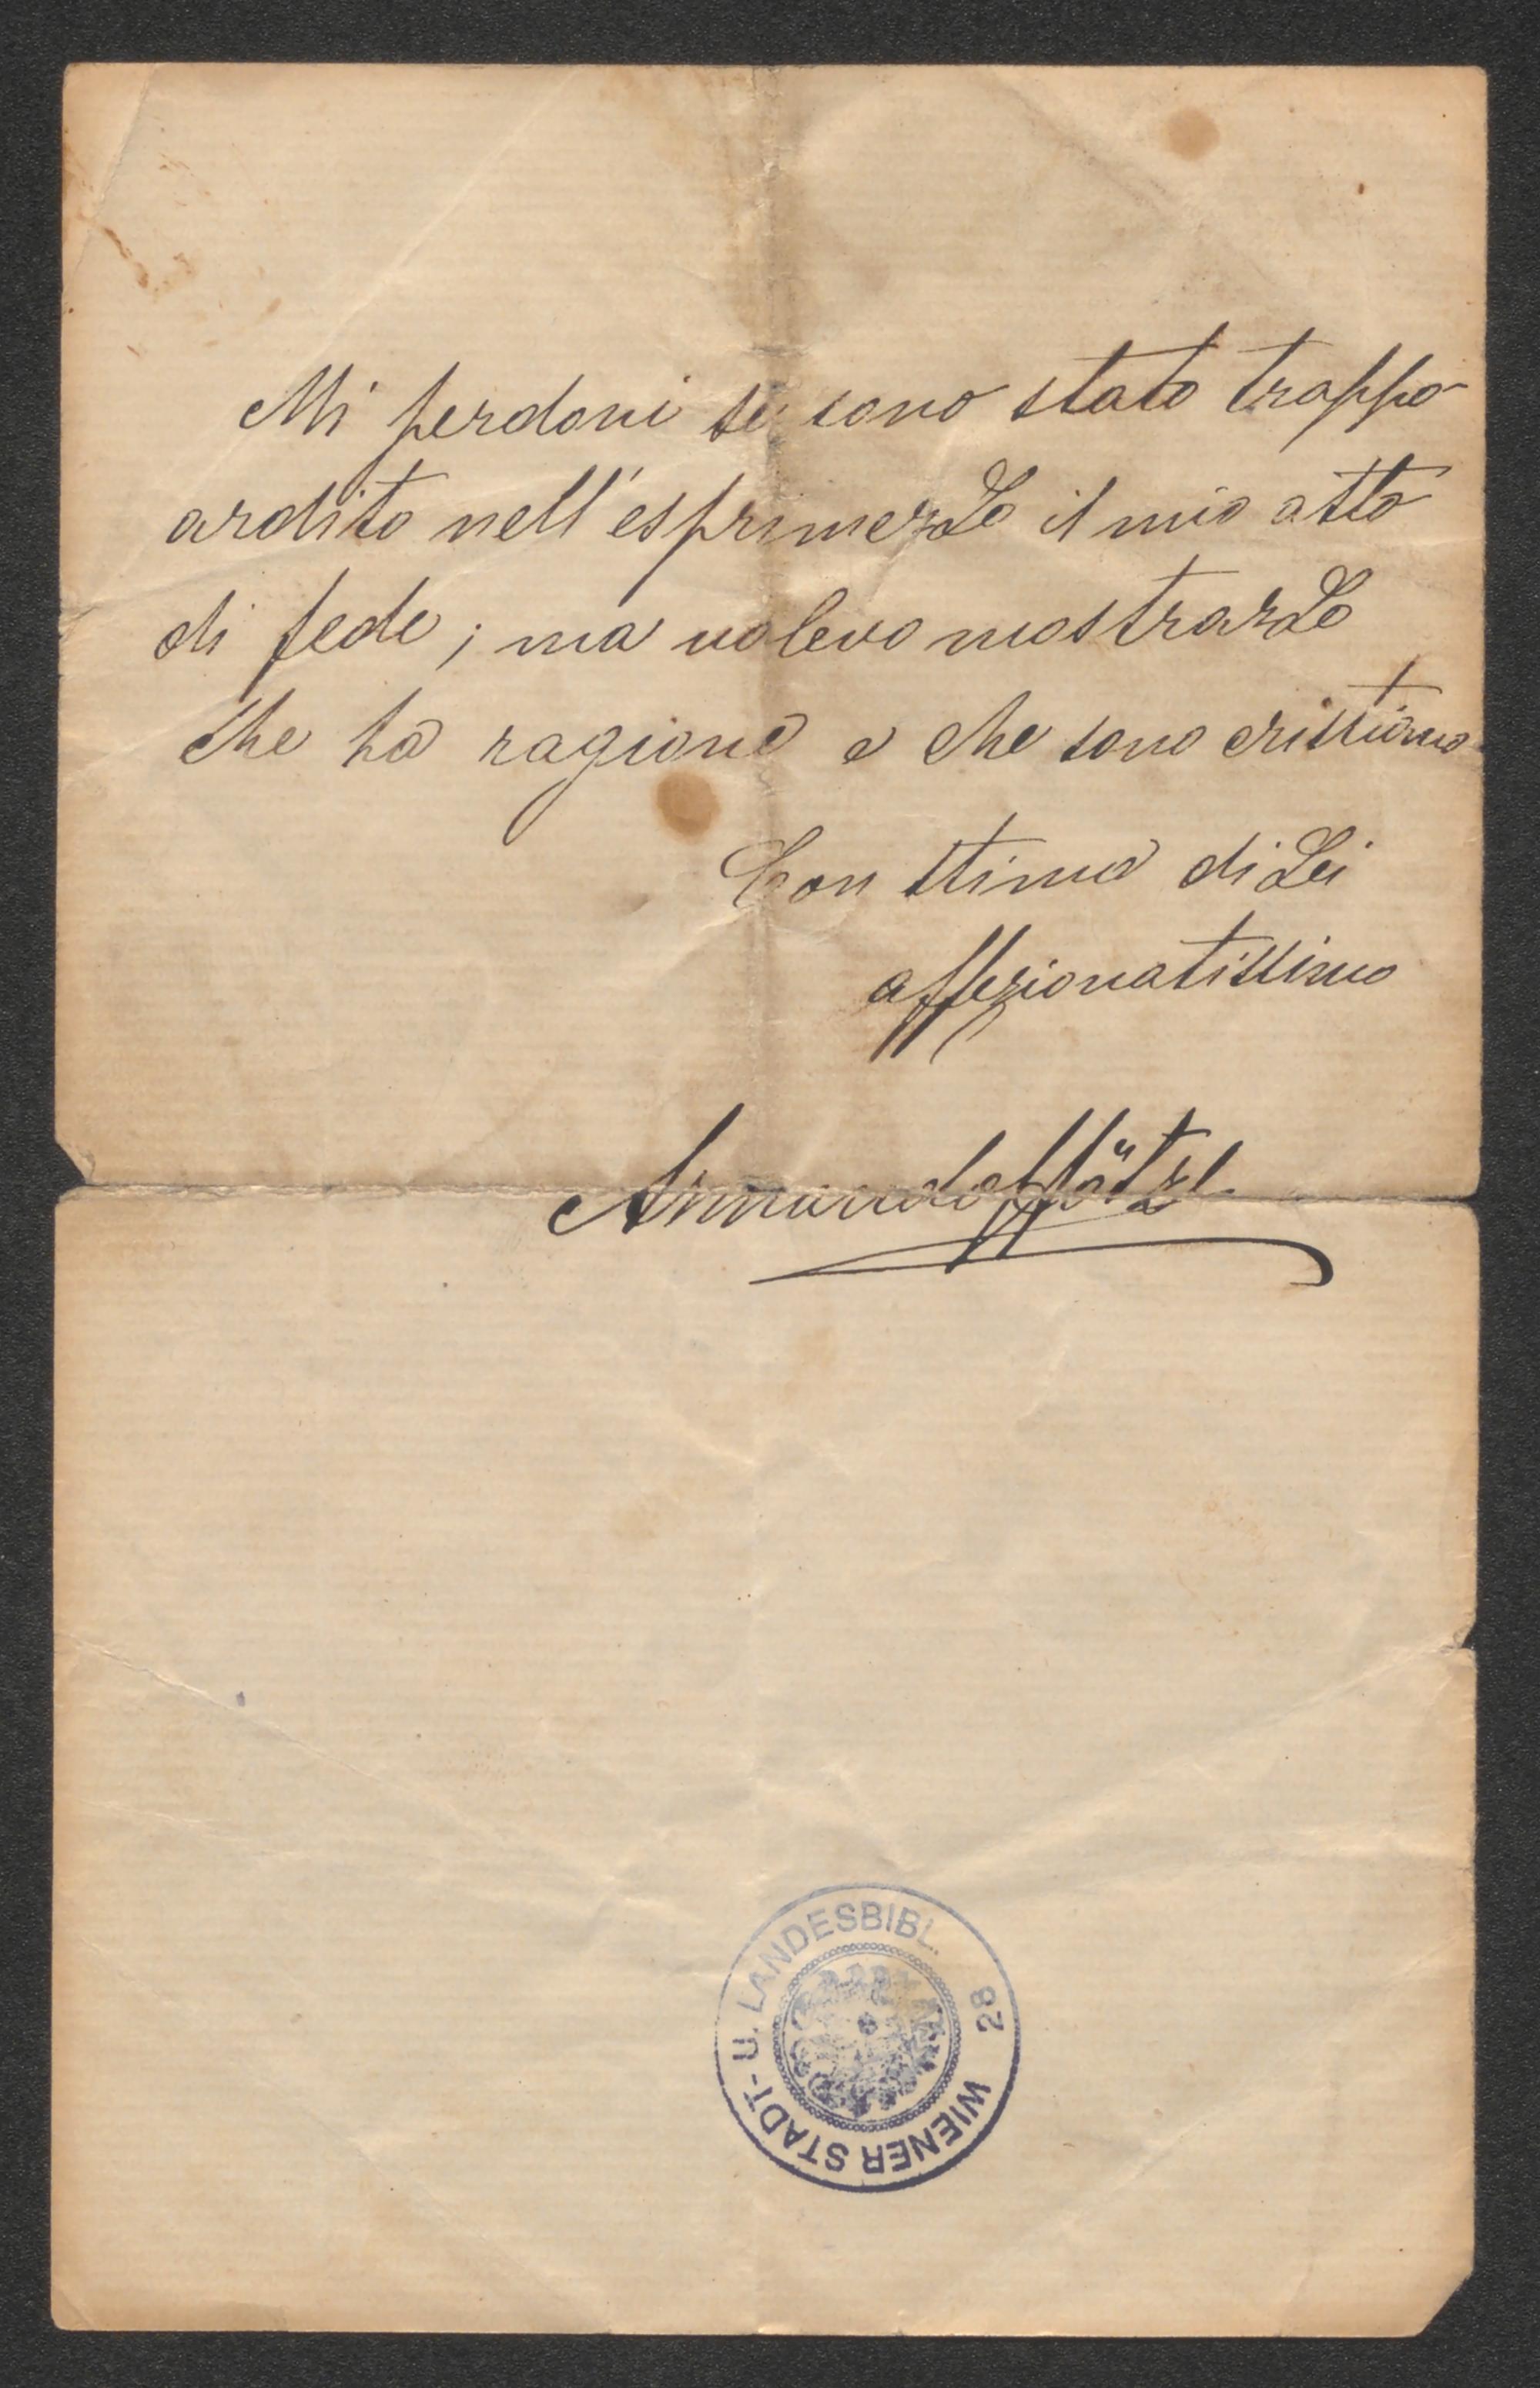 Mi perdoni se sono stato troppo
ardito nell'esprimerLe il mio atto
di fede; ma volevo mostrarLe
che ha ragione e che sono cristiano
Con stima di Lei
affezionatissimo
Armando
WIENER STADT- U. LANDESBIBL.
28